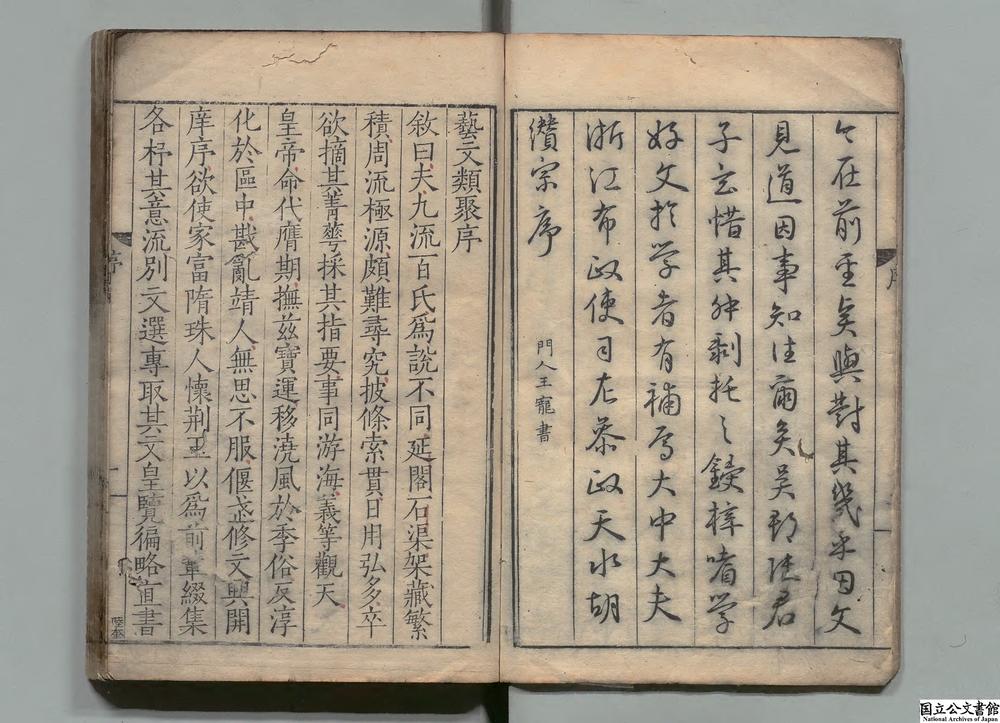 在前至矣與對其幾乎因文
見道因事知往爾矣吳郡陸君
子玄惜其殊剥托之鋟梓嗜学
好文於学者有補焉大中大夫
浙江布政使司左叅政天水胡
纘宗序
門人王寵書
序
一
藝文類聚序
敘曰夫九流百氏爲說不同延閣石渠架藏繁
積周流極源頗難尋究披條索貫日用弘多卒
欲摘其菁華採其指要事同游海義等觀天
皇帝命代膺期撫兹寶運移澆風於季俗反淳
化於區中戡亂靖人無思不服偃武修文興開
庠序欲使家富隋珠人懷荆玉以爲前輩綴集
各杼其意流别文選專取其文皇覽徧略直書
序
一
陸奎
国立公文書館
National Archives of Japan